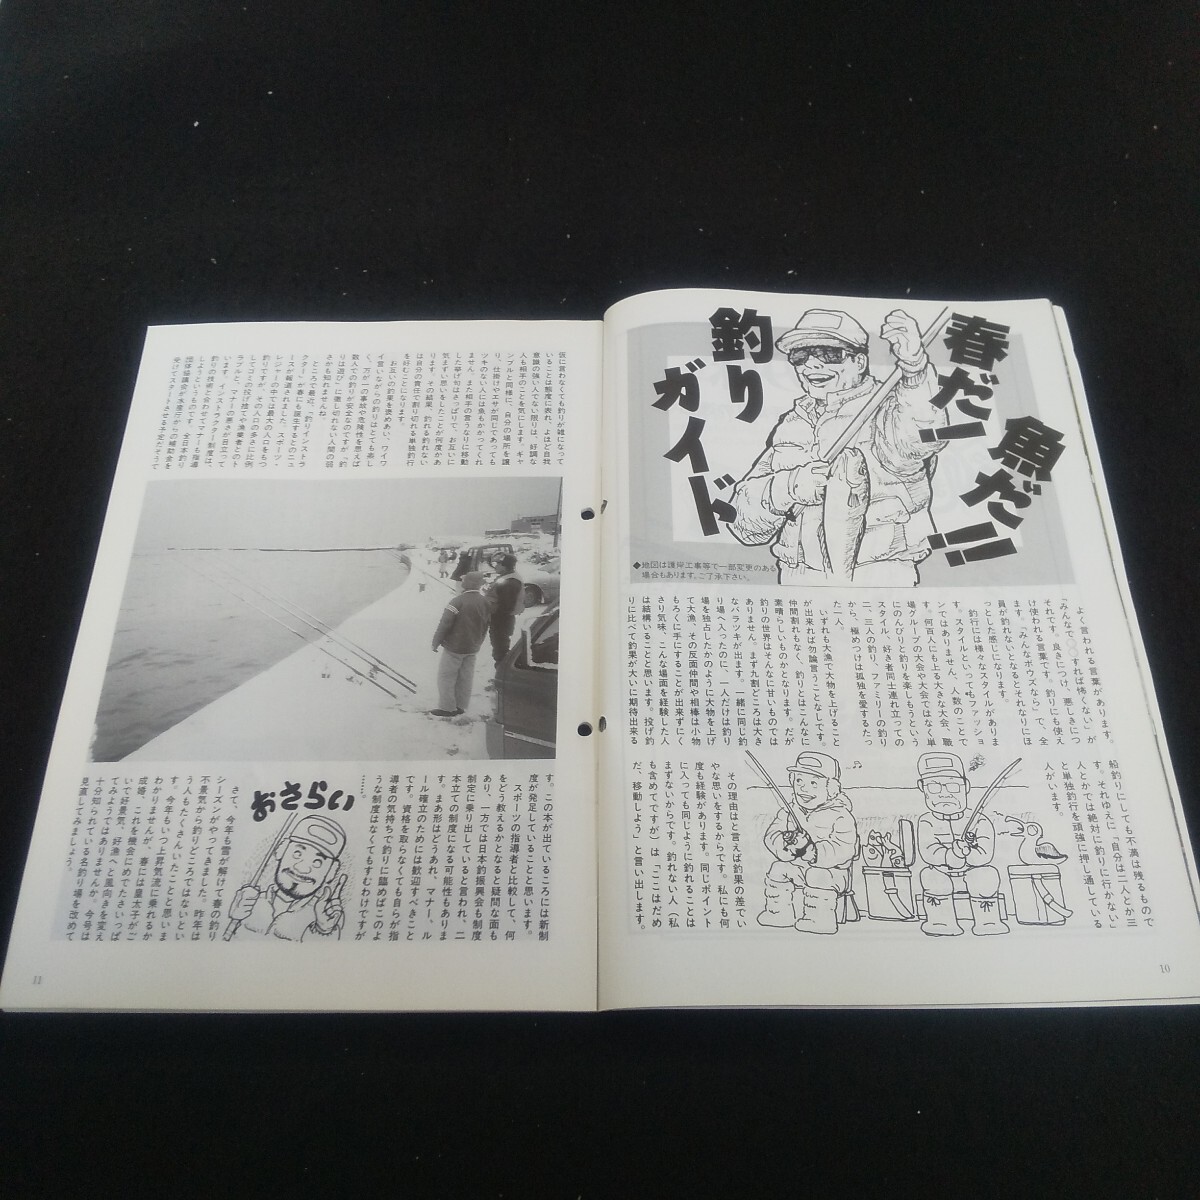 春だ!!
魚だ!!!
釣り
ガイド
◆地図は護岸工事等で一部変更のある
場合もあります。ご了承下さい。
よく言われる言葉があります。
「みんなで、○○すれば怖くない」が
それです。良きにつけ、悪しきにつ
け使われる言葉です。釣りにも使え
ます。「みんなボウズなら」で、全
員が釣れないとなるとそれなりにほ
っとした感じになります。
釣行には様々なスタイルがありま
す。スタイルといってもファッショ
ンではありません、人数のことで
す。何百人にも上る大きな大会、職
場グループの大会や大会ではなく単
にのんびりと釣りを楽しもうという
スタイル、好き者同士連れ立っての
二、三人の釣り、ファミリーの釣り
から、極めつけは孤独を愛するたっ
た一人。
いずれも大漁で大物を上げること
が出来れば勿論言うことなしです。
仲間割れもなく、釣りとはこんなに
素晴らしいものかとなります。だが
釣りの世界はそんなに甘いものでは
ありません。まず九割どころは大き
なバラツキが出ます。一緒に同じ釣
り場へ入ったのに、一人だけは釣り
場を独占したかのように大物を上げ
て大漁、その反面仲間や相棒は小物
もろくに手にすることが出来ずにく
さり気味、こんな場面を経験した人
は結構いることと思います。投げ釣
りに比べて釣果が大いに期待出来る
船釣りにしても不満は残るもので
す。それゆえに「自分は二人とか三
人とかでは絶対に釣りに行かない」
と単独釣行を頑強に押し通している
人がいます。
その理由はと言えば釣果の差でい
やな思いをするからです。私にも何
度も経験があります。同じポイント
に入っても同じように釣れることは
まずないからです。釣れない人(私
も含めてですが)は「ここはだめ
だ、移動しよう」と言い出します。
10
仮に言わなくても釣りが雑になって
いることは態度に表れ、よほど自我
意識の強い人でない限りは、好調な
人も相手のことを気にします。ギャ
ンブルと同様に、自分の場所を譲
り、仕掛けやエサが同じであっても
ツキのない人には魚もかかってくれ
ません。また相手の言うなりに移動
した挙げ句はさっぱりで、お互いに
気まずい思いをしたことが何度かあ
ります。その結果、釣れる釣れない
は自分の責任で割り切れる単独釣行
を好むことになります。
お互いの釣果を褒めあい、ワイワ
イ言いながらの釣りはとても楽し
く、万が一の事故や危険性を思えば
複数人での釣りが安全なのですが、「釣
りは遊び」に徹し切れない人間の弱
さかも知れませんね。
ところで最近、“釣りインストラ
クター”が春にも誕生するとのニュ
ースが報道されました。スポーツ・
レジャーの中でも最大の人口をもつ
釣りですが、その人口の多さに比例
してゴミの投げ捨てや漁業者とのト
ラブルと、マナーの悪さが目立って
います。インストラクター制度は、
釣りの技術と合わせてマナーも指導
しようというものです。全日本釣り
団体協議会が水産庁からの補助金を
受けてスタートさせる予定だそうで
す。この本が出ているころには新制
度が発足していることと思います。
スポーツの指導者と比較して、何
をどう教えるかとなると疑問な面も
あり、一方では日本釣振興会も制度
制定に乗り出していると言われ、二
本立ての制度になる可能性もありま
す。まあ形はどうあれ、マナー、ル
ール確立のためには歓迎すべきこと
です。資格を取らなくても自らが指
導者の気持ちで釣りに臨めばこのよ
うな制度はなくてもすむわけですが
……。
おさらい
さて、今年も雪が解けて春の釣り
シーズンがやってきました。昨年は
不景気から釣りどころではないとい
う人もたくさんいたことと思いま
す。今年もいつ上昇気流に乗れるか
わかりませんが、春には皇太子がご
成婚、これを機会にめでたさいっぱ
いで好景気、好漁へと風向きを変え
てみようではありませんか。今号は
十分知られている名釣り場を改めて
見直してみましょう。
11